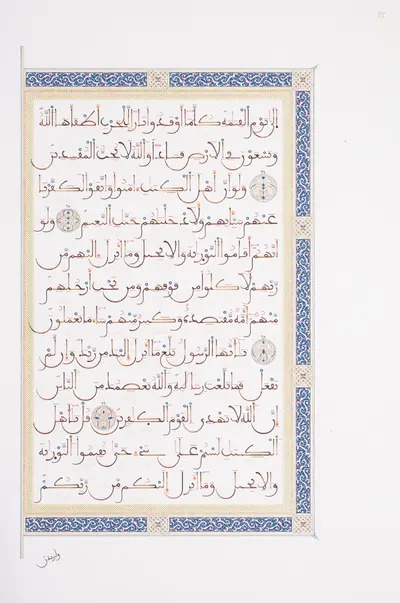 إلى يوم القيمة كلما أوقدوا نارا للحرب أطفأها الله
ويسعون في الأرض فسادا والله لا يحب المفسدين
ولو أن أهل الكتب ءامنوا واتقوا لكفرنا
عنهم سيئاتهم ولأدخلنهم جنت النعيم ولو
أنهم أقاموا التورية والإنجيل وما أنزل إليهم من
ربهم لأكلوا من فوقهم ومن تحت أرجلهم
منهم أمة مقتصدة وكثير منهم ساء ما يعملون
يأيها الرسول بلغ ما أنزل إليك من ربك وإن لم
تفعل فما بلغت رسالته والله يعصمك من الناس
إن الله لا يهدي القوم الكفرين قل يأهل
الكتب لستم على شيء حتى تقيموا التورية
والإنجيل وما أنزل إليكم من ربكم
وليزيدن